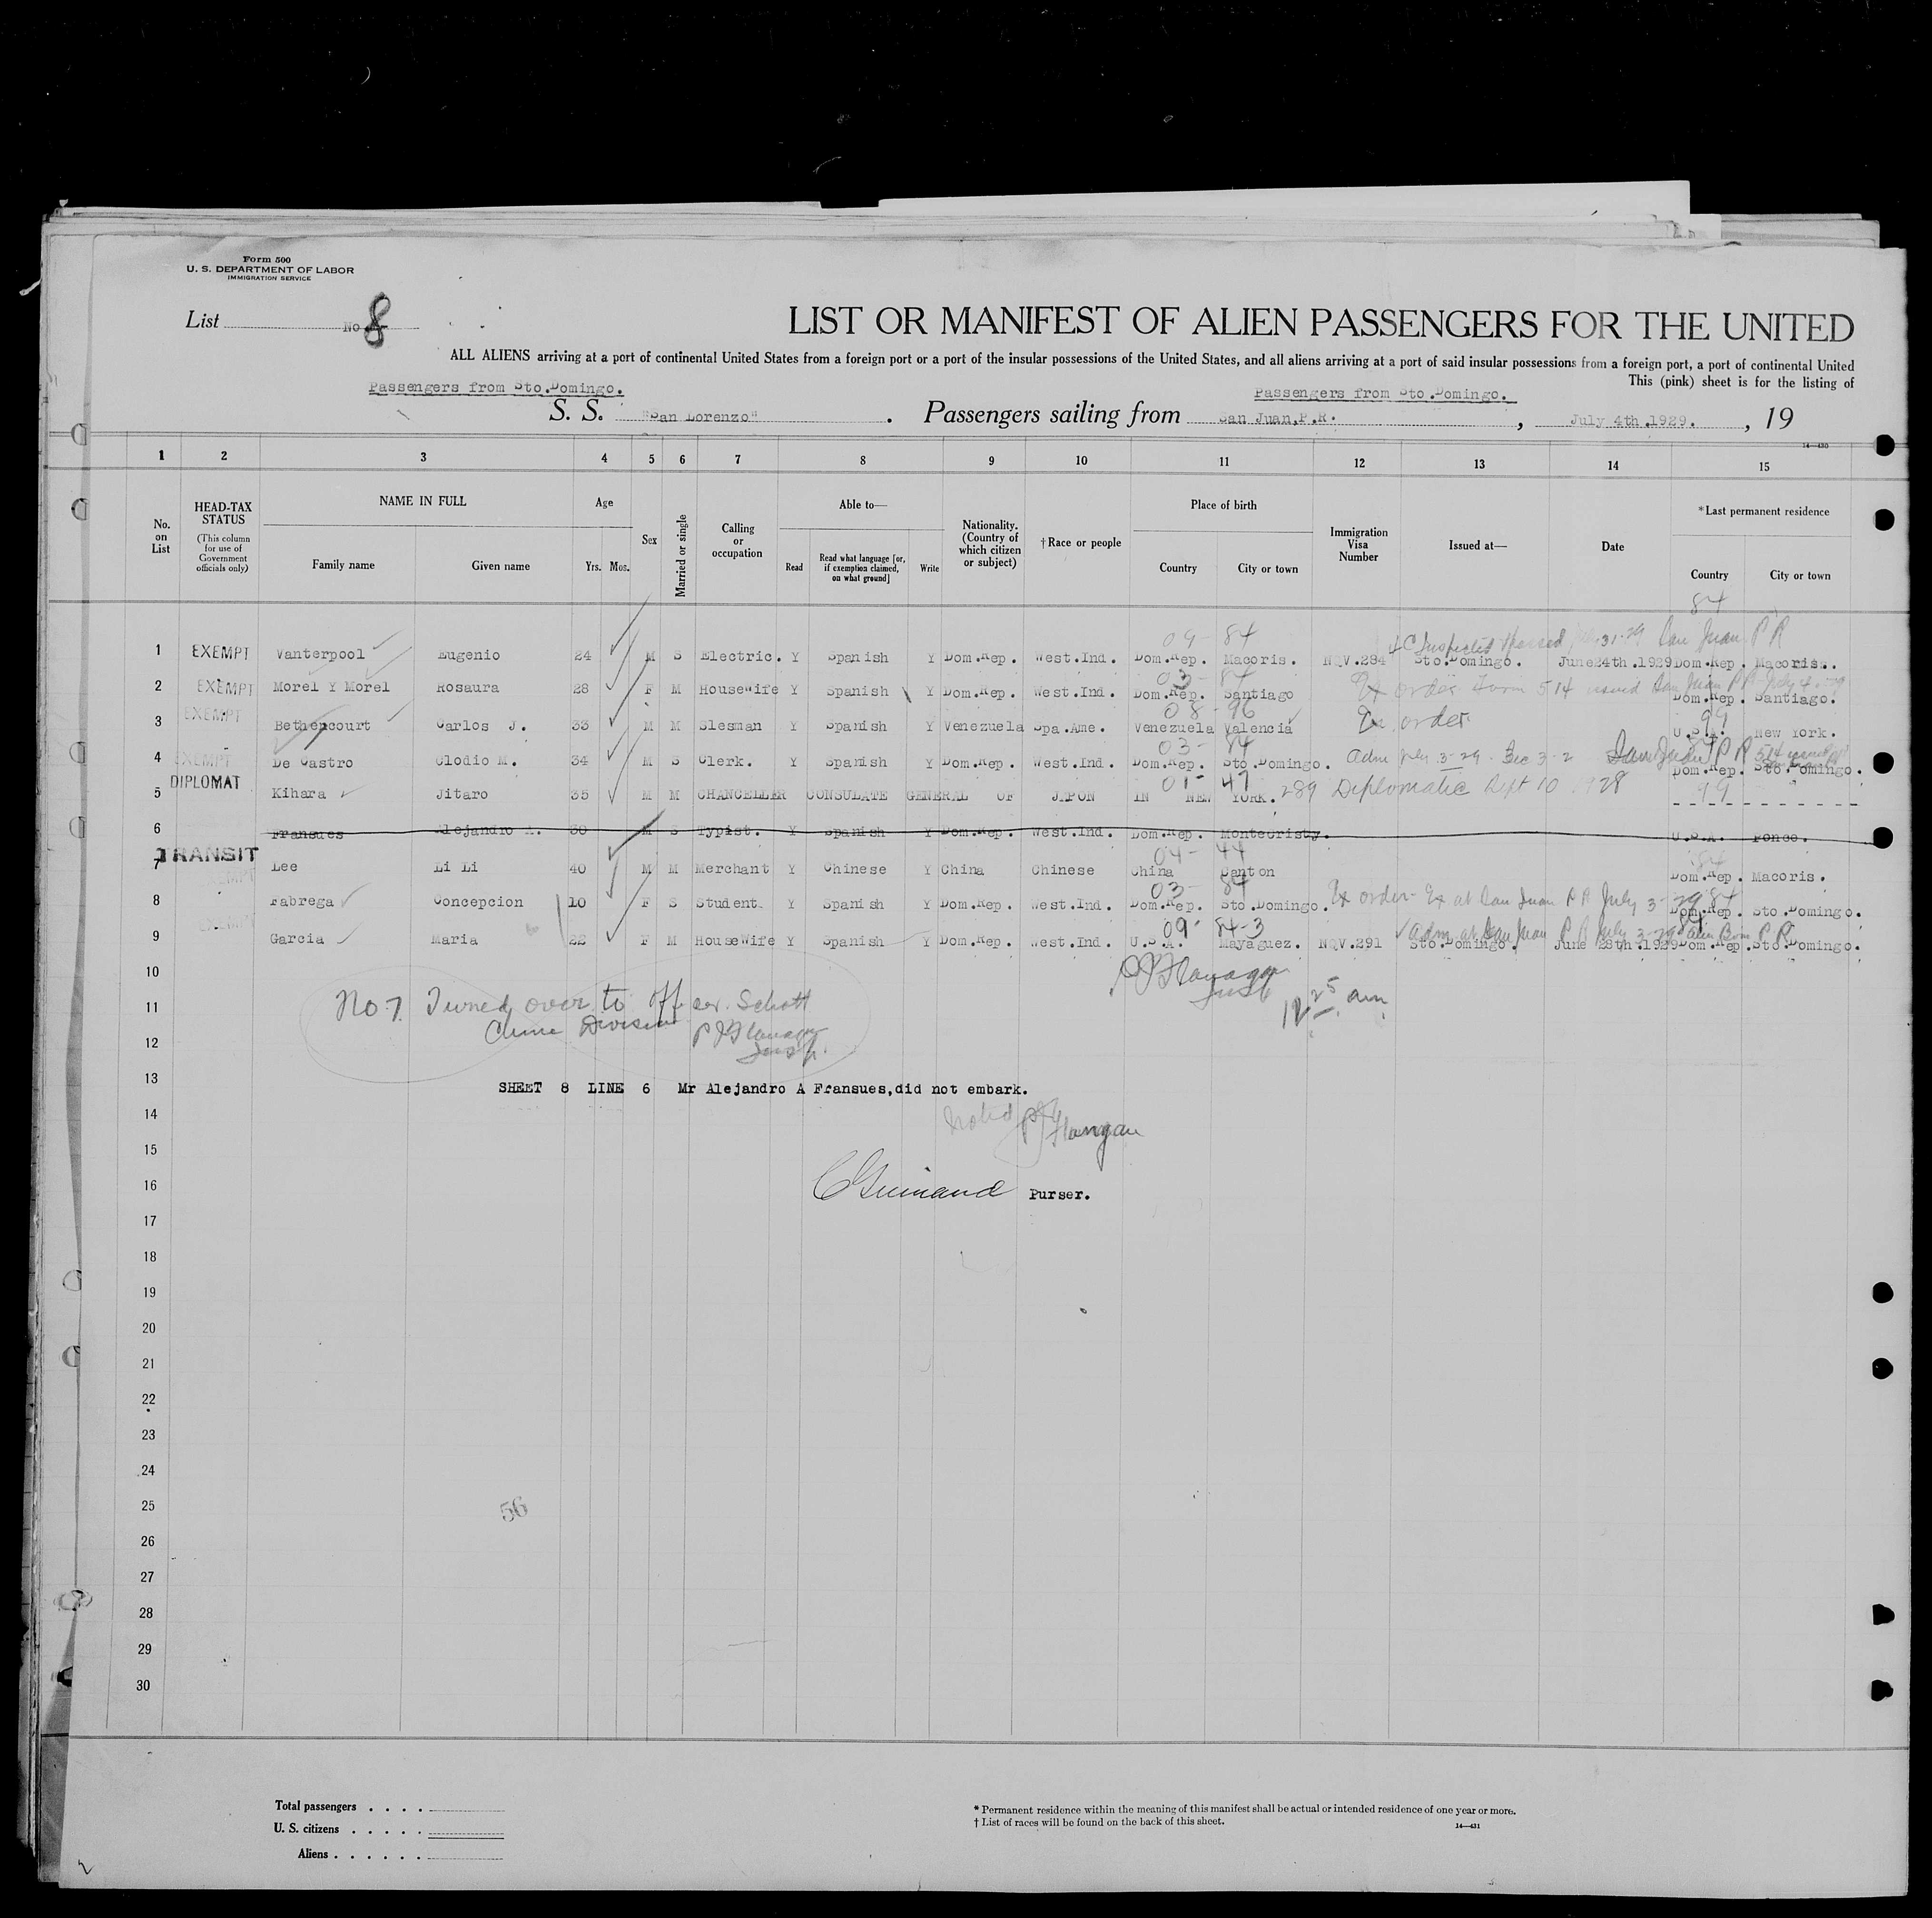 Form 500
U. S. DEPARTMENT OF LABOR
IMMIGRATION SERVICE
List No 8
LIST OR MANIFEST OF ALIEN PASSENGERS FOR THE UNITED
ALL ALIENS arriving at a port of continental United States from a foreign port or a port of the insular possessions of the United States, and all aliens arriving at a port of said insular possessions from a foreign port, a port of continental United
This (pink) sheet is for the listing of
Passengers from Sto.Domingo. Passengers from Sto.Domingo.
S. S. "San Lorenzo" . Passengers sailing from San Juan,P.R. , July 4th.1929. , 19
14—430
1 2 3 4 5 6 7 8 9 10 11 12 13 14 15
No. on List
HEAD-TAX STATUS
(This column for use of Government officials only)
NAME IN FULL
Family name Given name
Age
Yrs. Mos.
Sex
Married or single
Calling or occupation
Able to—
Read Read what language [or, if exemption claimed, on what ground] Write
Nationality. (Country of which citizen or subject)
†Race or people
Place of birth
Country City or town
Immigration Visa Number
Issued at—
Date
*Last permanent residence
Country City or town
84
09- 84 San Juan P R
1 EXEMPT Vanterpool Eugenio 24 M S Electric. Y Spanish Y Dom.Rep. West.Ind. Dom.Rep. Macoris. NQV.284 Sto.Domingo. June24th.1929 Dom.Rep. Macoris.
03- 84 Ex order Form 514 issued San Juan P R July
2 EXEMPT Morel Y Morel Rosaura 28 F M Housewife Y Spanish Y Dom.Rep. West.Ind. Dom.Rep. Santiago Dom.Rep. Santiago.
08-96 Ex order 99
3 EXEMPT Bethencourt Carlos J. 33 M M Slesman Y Spanish Y Venezuela Spa.Ame. Venezuela Valencia U.S.A. New York.
03- 84 Adm July 3-29 Sec 3-2 San Juan P R
4 EXEMPT De Castro Clodio M. 34 M S Clerk. Y Spanish Y Dom.Rep. West.Ind. Dom.Rep. Sto.Domingo. Dom.Rep. Sto.Domingo.
DIPLOMAT
01- 47 99
5 Kihara Jitaro 35 M M CHANCELLER CONSULATE GENERAL OF JAPON IN NEW YORK. 289 Diplomatic Sept 10 1928
6 Fransues Alejandro A. 30 M S Typist. Y Spanish Y Dom.Rep. West.Ind. Dom.Rep. Montecristy. U.S.A. Ponce.
TRANSIT
04- 44 84
7 Lee Li Li 40 M M Merchant Y Chinese Y China Chinese China Canton Dom.Rep. Macoris.
EXEMPT
03- 84 Ex order- Ex at San Juan P R July 3-29 84
8 Fabrega Concepcion 10 F S Student. Y Spanish Y Dom.Rep. West.Ind. Dom.Rep. Sto.Domingo. Dom.Rep. Sto.Domingo.
EXEMPT
09- 84-3 Adm at San Juan P R July 3-29 alien Born P R
9 Garcia Maria 22 F M HouseWife Y Spanish Y Dom.Rep. West.Ind. U.S.A. Mayaguez. NQV.291 Sto.Domingo. June 28th.1929 Dom.Rep. Sto.Domingo.
10
P J Flanagan
Insp
12 25 am
11 No 7. Turned over to officer Schott
Chine Division P J Flanagan
12
Insp.
13 SHEET 8 LINE 6 Mr Alejandro A Fransues,did not embark.
14 Noted P J Flanagan
15
16 Purser.
17
18
19
20
21
22
23
24
25 56
26
27
28
29
30
Total passengers . . . .
U. S. citizens . . . . .
Aliens . . . . . .
* Permanent residence within the meaning of this manifest shall be actual or intended residence of one year or more.
† List of races will be found on the back of this sheet. 14—431